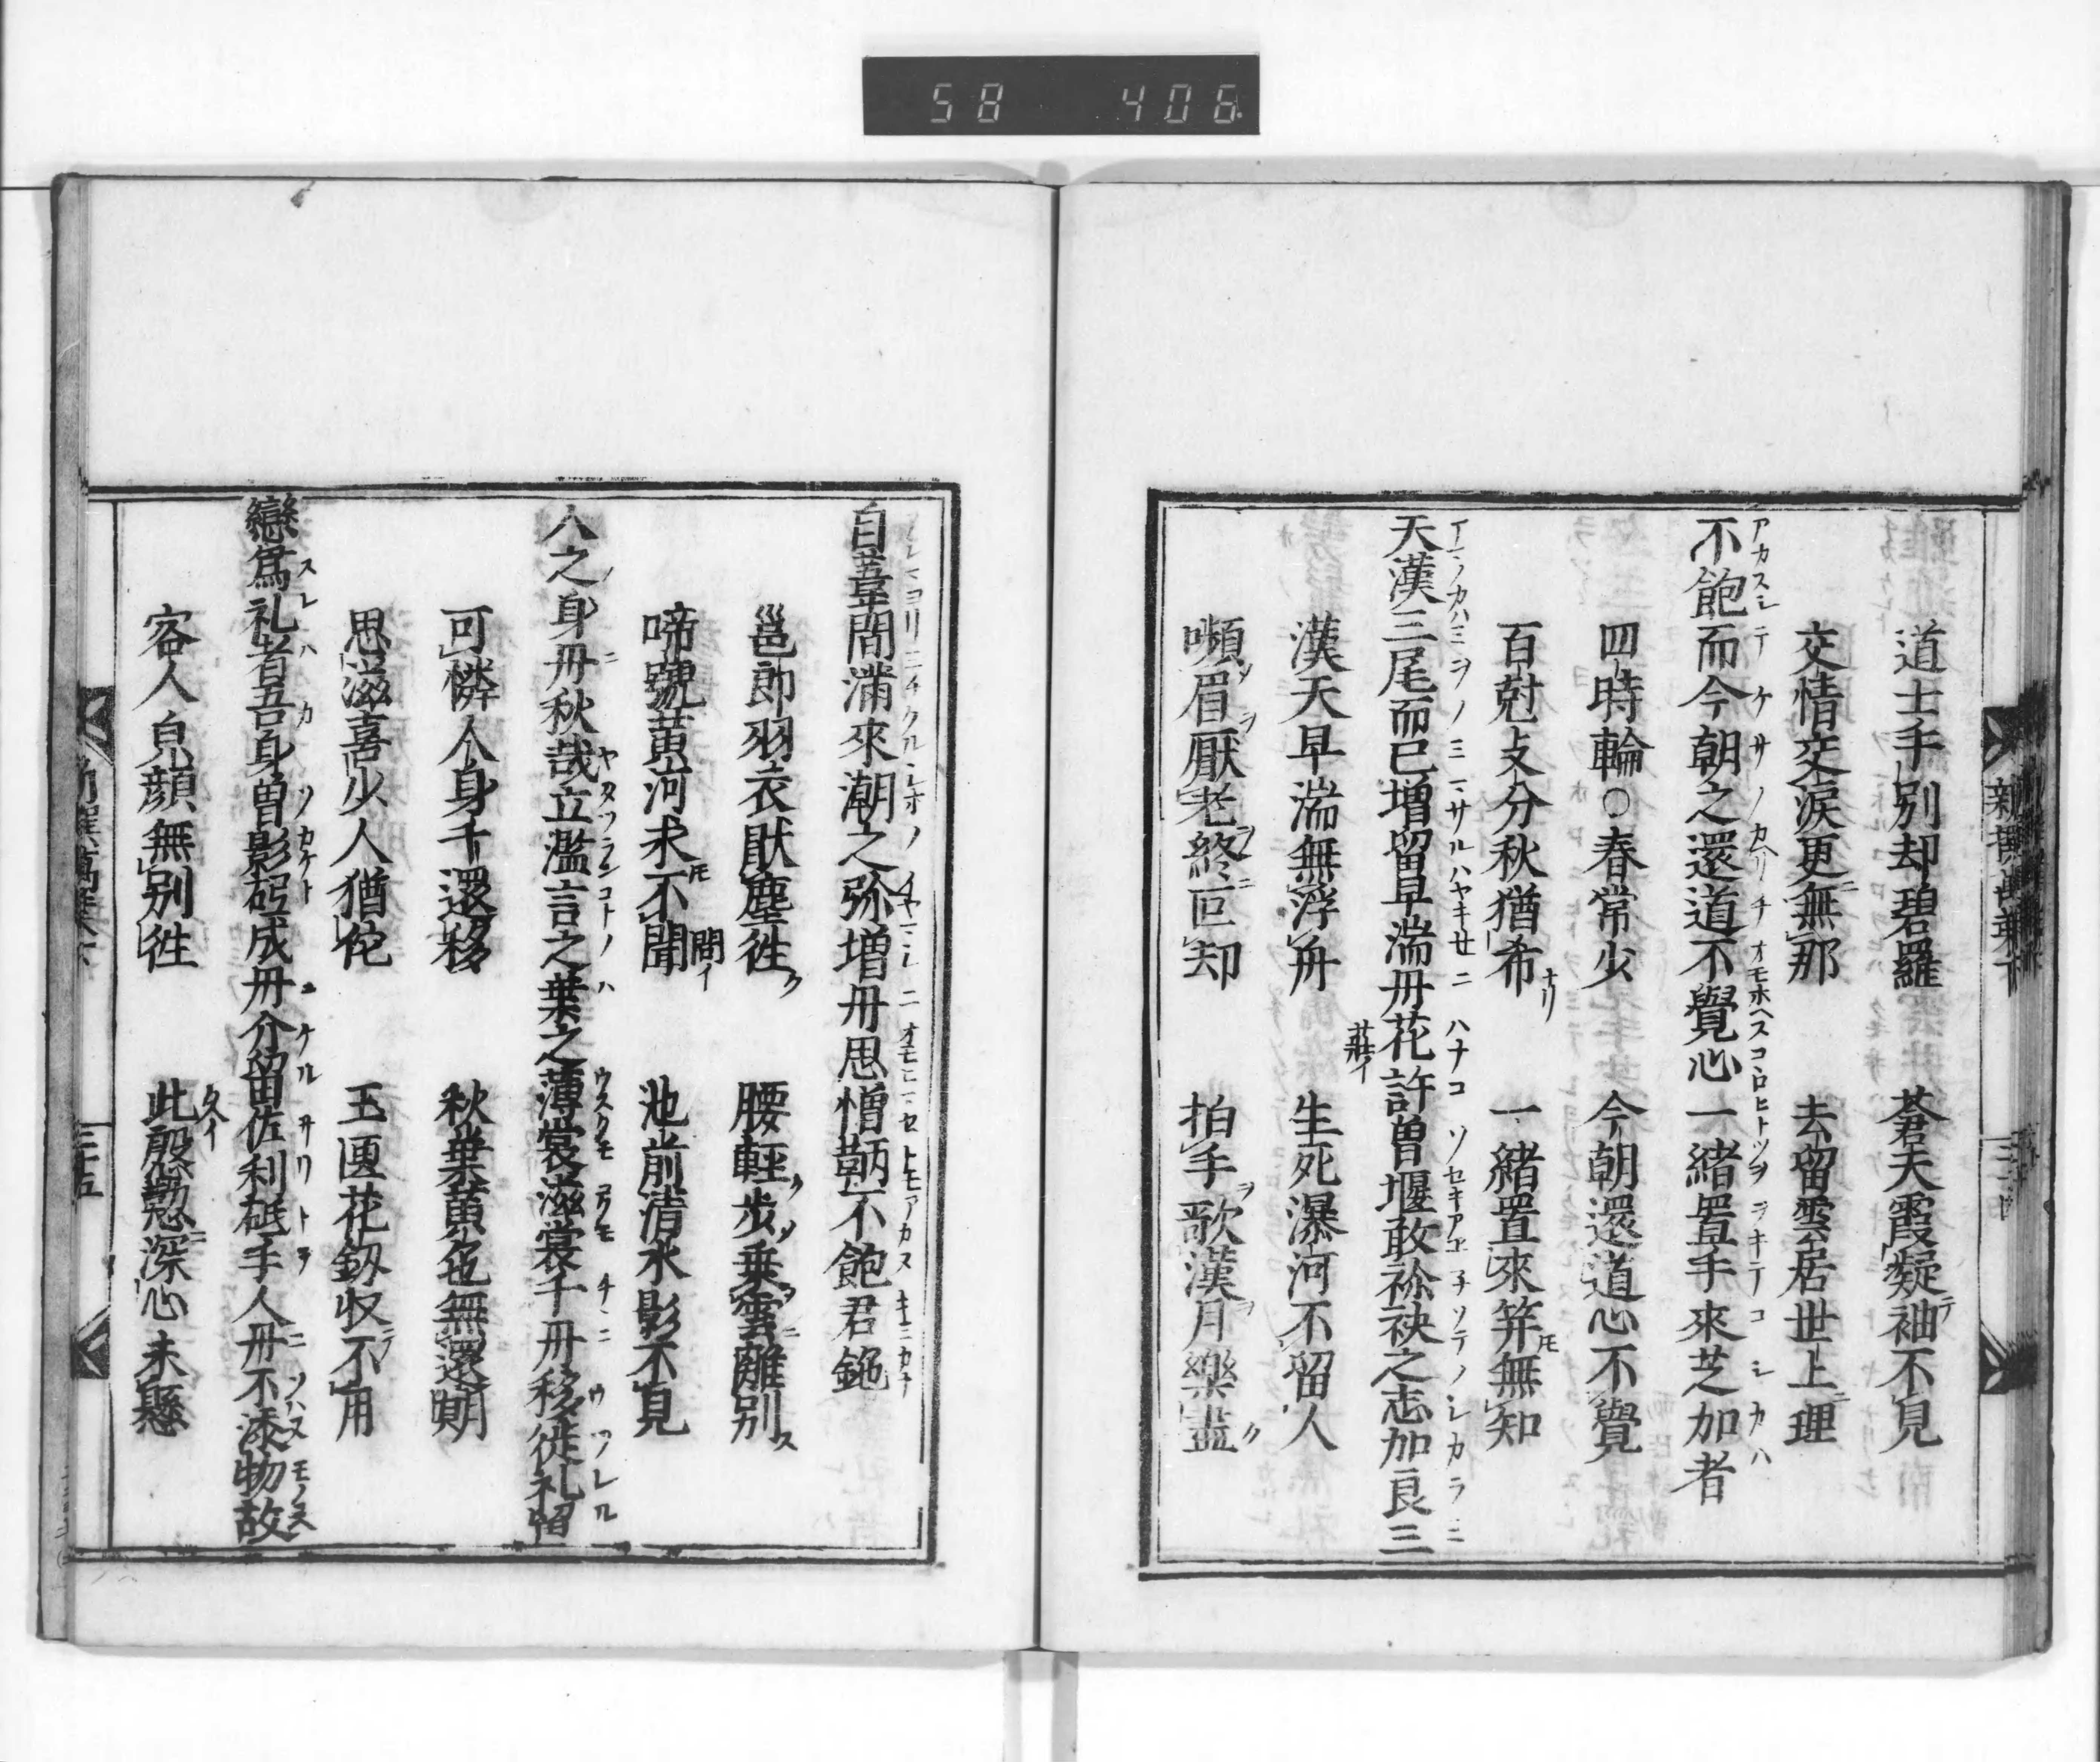 58 406
道士手別却碧羅 蒼天霞凝袖不見
交情交涙更無那 去留雲居世上理
不飽而今朝之還道不覺心一緒置手來芝加者
四時輪○春常少 今朝還道心不覺
百尅支分秋猶希 一緒置來筭無知
天漢三尾而已増留早湍丹花許曽堰敢袮袂之志加良三
漢天早湍無浮舟 生死瀑河不留人
嚬眉厭老終叵却 拍手歌漢月樂盡
自葦間滿來潮之弥増丹思憎鞆不飽君鉇
邕郎羽衣猒塵徃 腰輕步乗雲離別
啼號黄河求不聞 池前清水影不見
人之身丹秋哉立濫言之葉之薄裳滋裳千丹移徙礼留
可憐人身千還移 秋葉黄色無還期
思滋喜少人猶佗 玉匣花釼収不用
戀爲礼者吾身曽影砢成丹介留佐利砥手人丹不添物故
客人皃顔無別徃 此慇懃深心未懸